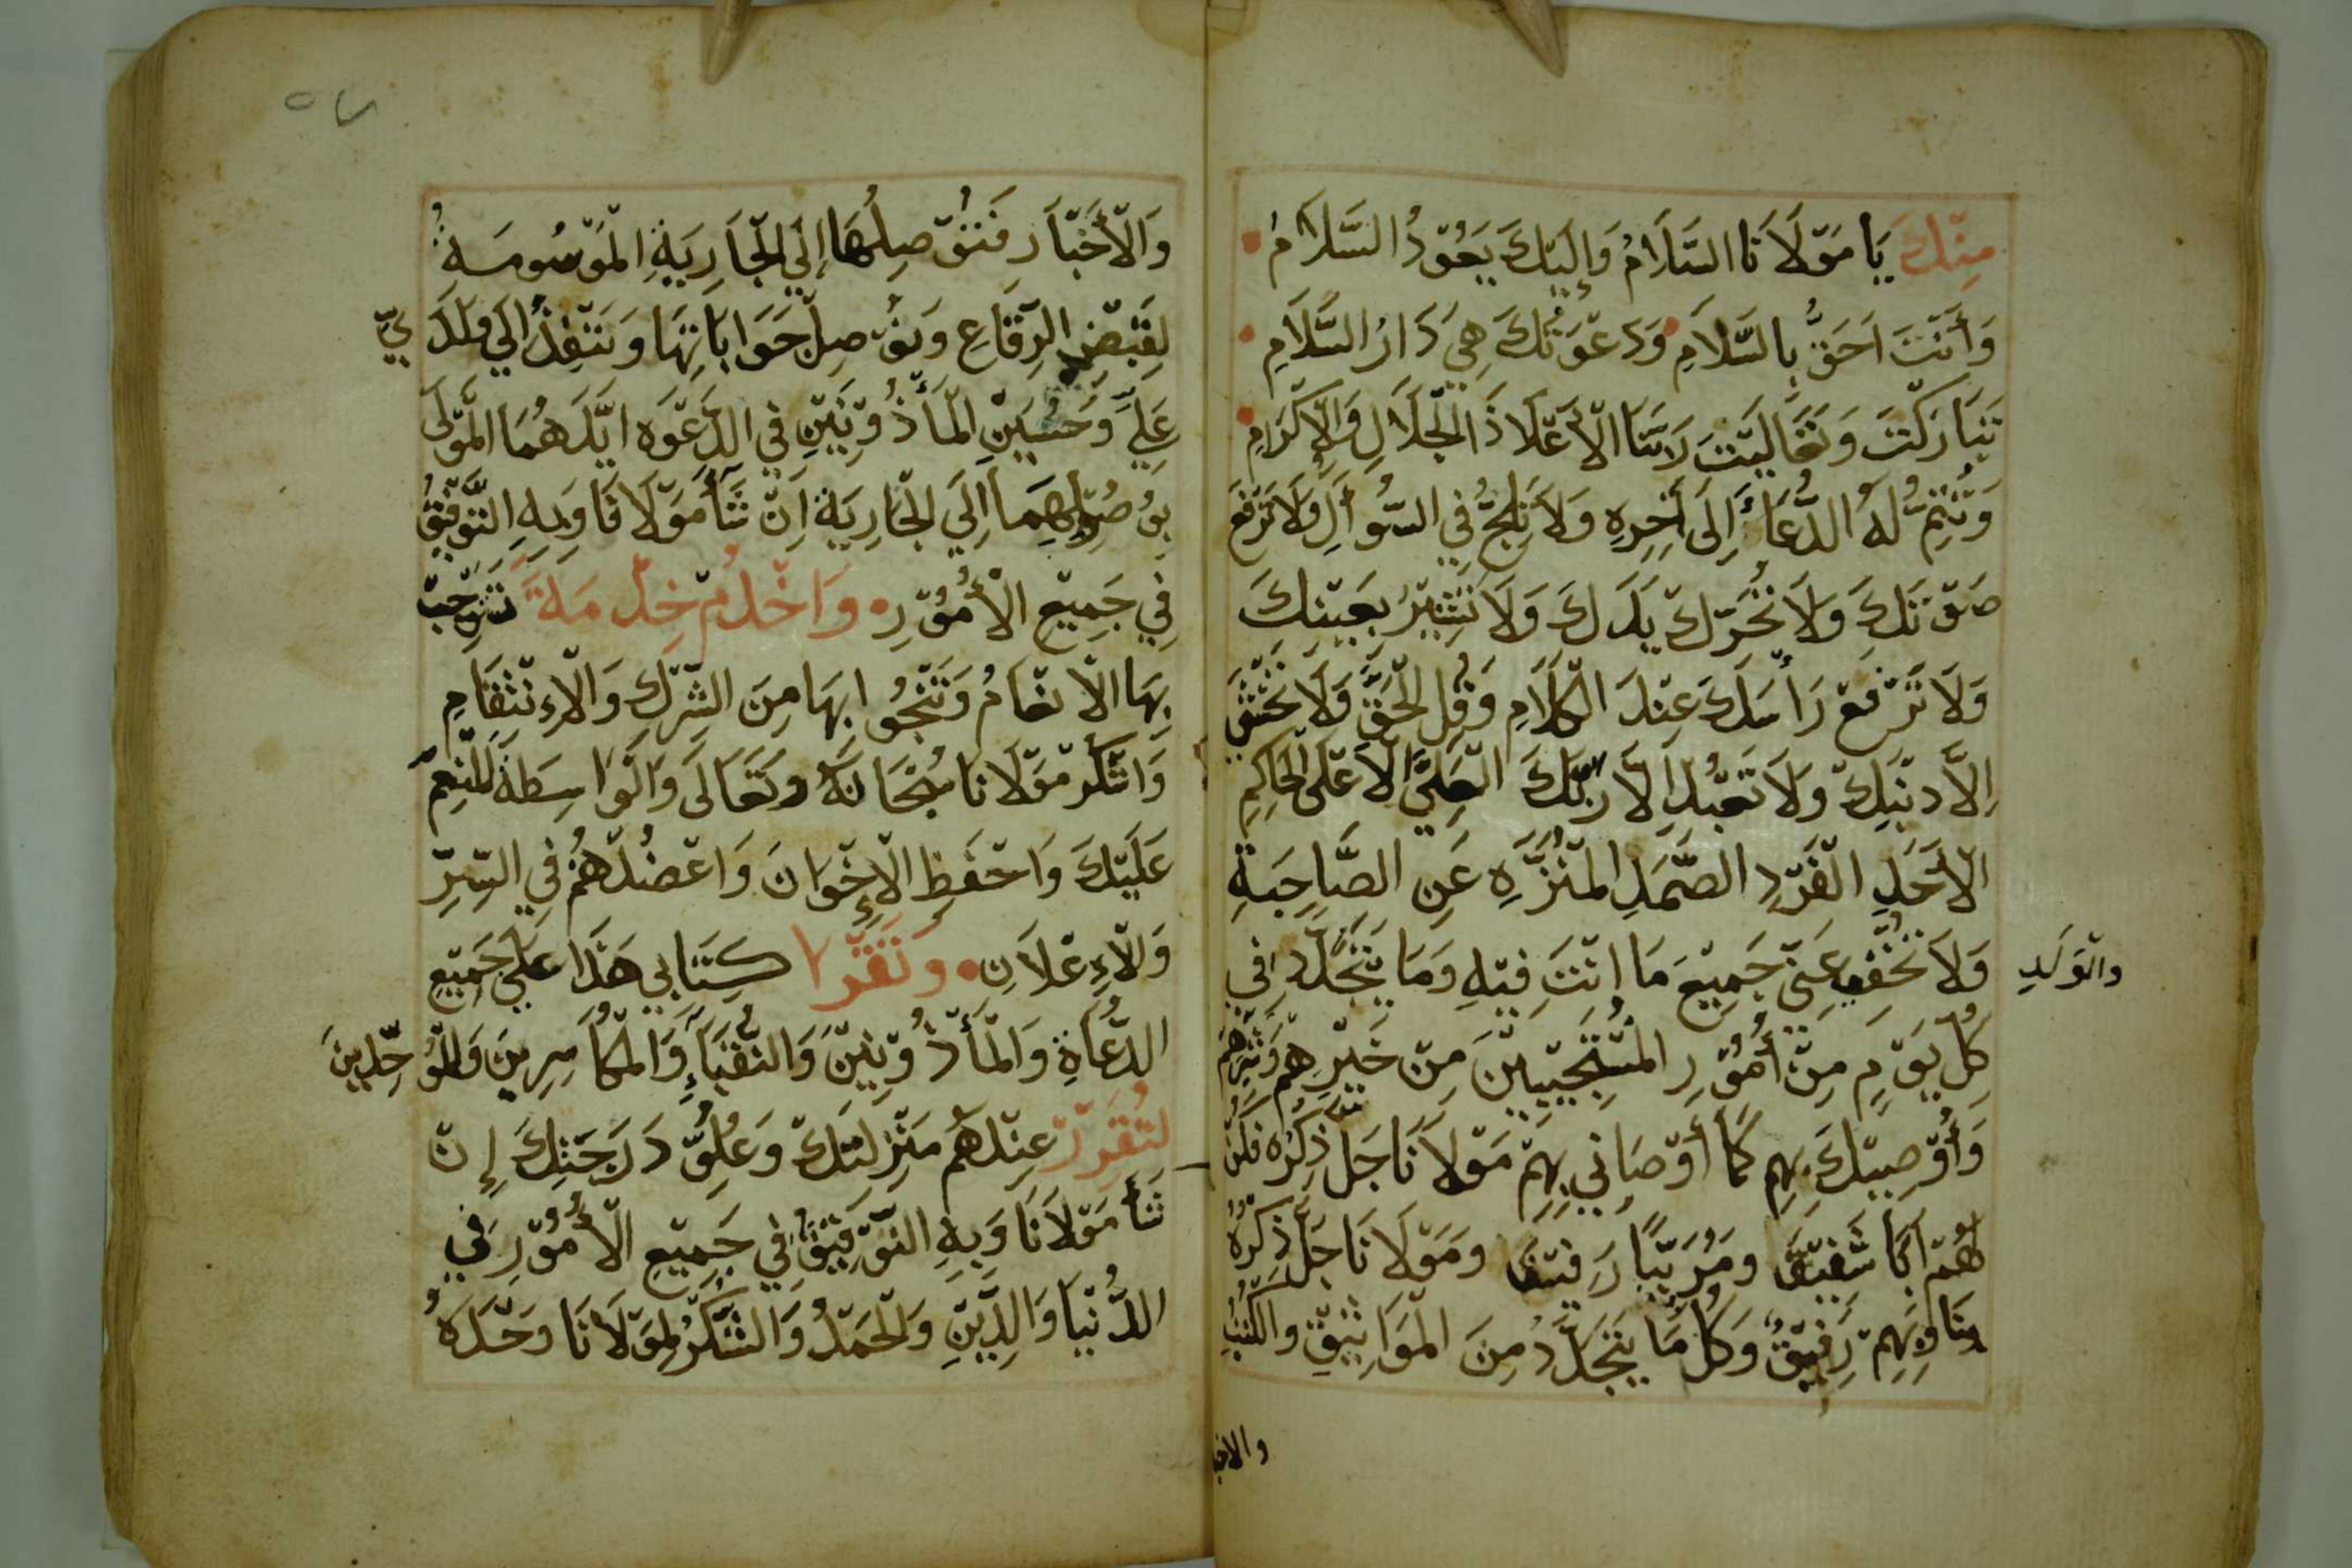 مِنْكَ يَا مَوْلَانَا السَّلَامُ وَإِلَيْكَ يَعُوْدُ السَّلَامُ
وَأَنْتَ اَحَقُّ بِالسَّلَامِ وَدَعْوَتُكَ هِيَ دَارُ السَّلَامِ
تَبَارَكْتَ وَتَعَالَيْتَ رَبَّنَا الْأَعْلَا ذَا الْجَلَالِ وَالْإِكْرَامِ
وَتُتِمُّ لَهُ الدُّعَاءَ إِلَى آخِرِهِ وَلَا تَلِجُّ فِي السُّوأَلِ وَلَا تَرْفَعْ
صَوْتَكَ وَلَا تُحَرِّكْ يَدَكَ وَلَا تُشِيْرُ بِعَيْنِكَ
وَلَا تَرْفَعْ رَأْسَكَ عِنْدَ الْكَلَامِ وَقُلِ الْحَقَّ وَلَا تَخْشَ
اِلَّا ذَنْبَكَ وَلَا تَعْبُدْ اِلَّا رَبَّكَ الْعَلِيَّ الْاَعْلَى الْحَاكِمِ
الْأَحَدِ الْفَرْدِ الصَّمَدِ الْمُنَزَّهِ عَنِ الصَّاحِبَةِ
وَالْوَلَدِ
وَلَا تُخْفِي عَنِّي جَمِيْعَ مَا اَنْتَ فِيْهِ وَمَا يَتَجَدَّدُ فِي
كُلِّ يَوْمٍ مِنْ أُمُوْرِ الْمُسْتَجِيْبِيْنَ مِنْ خَيْرِهِمْ وَشَرِّهِمْ
وَأُوْصِيْكَ بِهِمْ كَمَا أَوْصَانِي بِهِمْ مَوْلَانَا جَلَّ ذِكْرُهُ فَكُنْ
لَهُمْ اَبًا شَفِيْقًا وَمُرَبِّيًا رَفِيْقًا وَمَوْلَانَا جَلَّ ذِكْرُهُ
بِنَا وَبِهِمْ رَفِيْقٌ وَكُلُّ مَا يَتَجَدَّدُ مِنَ الْمَوَاثِيْقِ وَالْكُتُبِ
والاخبا
وَالْأَخْبَارِ فَتُوْصِلُهَا إِلَي الْجَارِيَةِ الْمَوْسُومَةِ
لِقَبْضِ الرِّقَاعِ وَتُوْصِلْ جَوَابَاتِهَا وَتَنْفِذُ اِلَي وَلَدَيَّ
عَلِيٍّ وَحُسَيْنِ الْمَأْذُوْنَيْنِ فِي الدَّعْوَه اَيَّدَهُمَا الْمَوْلَى
بِوُصُوْلِهِمَا اِلَي الْجَارِيَةِ اِنْ شَأَ مَوْلَانَا وَبِهِ التَّوْفِيْقُ
فِي جَمِيْعِ الْأُمُوْرِ وَاخْدُمْ خِدْمَةً تَسْتَوْجِبْ
بِهَا الْاِنْعَامُ وَتَنْجُوا بِهَا مِنَ الشِّرْكِ وَالْاِنْتِقَامِ
وَاشْكُرْ مَوْلَانَا سُبْحَانَهُ وَتَعَالَى وَالْوَاسِطَةَ لِلنِّعَمِ
عَلَيْكَ وَاحْفَظِ الْإِخْوَانَ وَاعْضُدْهُمْ فِي السِّرِّ
وَالْاِعْلَانِ وَتَقْرَا كِتَابِي هَذَا عَلَي جَمِيْعِ
الدُّعَاةِ وَالْمَأْذُوْنِيْنَ وَالنُّقَبَاءِ وَالْمُكَاسِرِينَ وَالْمُوَحِّدِينَ
لِتُقَرِّرْ عِنْدَهُم مَنْزِلَتَكَ وَعُلُوَّ دَرَجَتِكَ إِنْ
شَأَ مَوْلَانَا وَبِهِ التَّوْفِيْقُ فِي جَمِيْعِ الْأُمُوْرِ فِي
الدُّنْيَا وَالدِّيْنِ وَالْحَمْدُ وَالشُّكْرُ لِمَوْلَانَا وَحْدَهُ